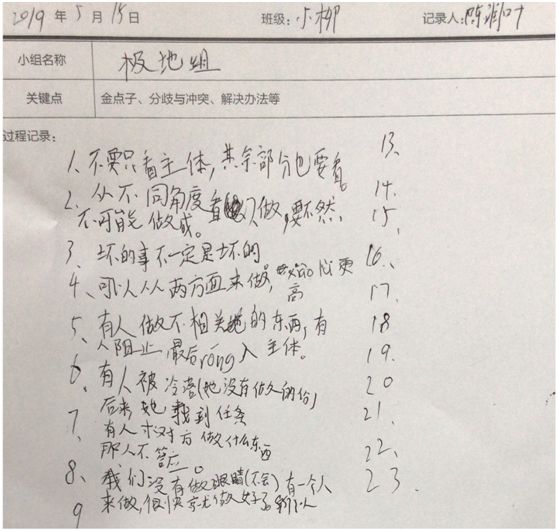 2019 年 5 月 15 日 班级: 小柳 记录人:陈润叶
小组名称 极地组
关键点 金点子、分歧与冲突、解决办法等
过程记录:
1、不要只看主体,其余部分也要看。
2、从不同角度看 做,要不然
不可能做成。
3、坏的事不一定是坏的
4、可以从两方面来做, 更
高
5、有人做不相关的东西,有
人阻止,最后róng入主体。
6、有人被冷落(她没有做久的份)
后来她找到任务
7、有人求对方做什么东西
那人不答应。
8、我们没有做眼睛(不会)有一个人
9 来做,很快就做好了
13、
14、
15、
16、
17、
18
19、
20
21、
22、
23、